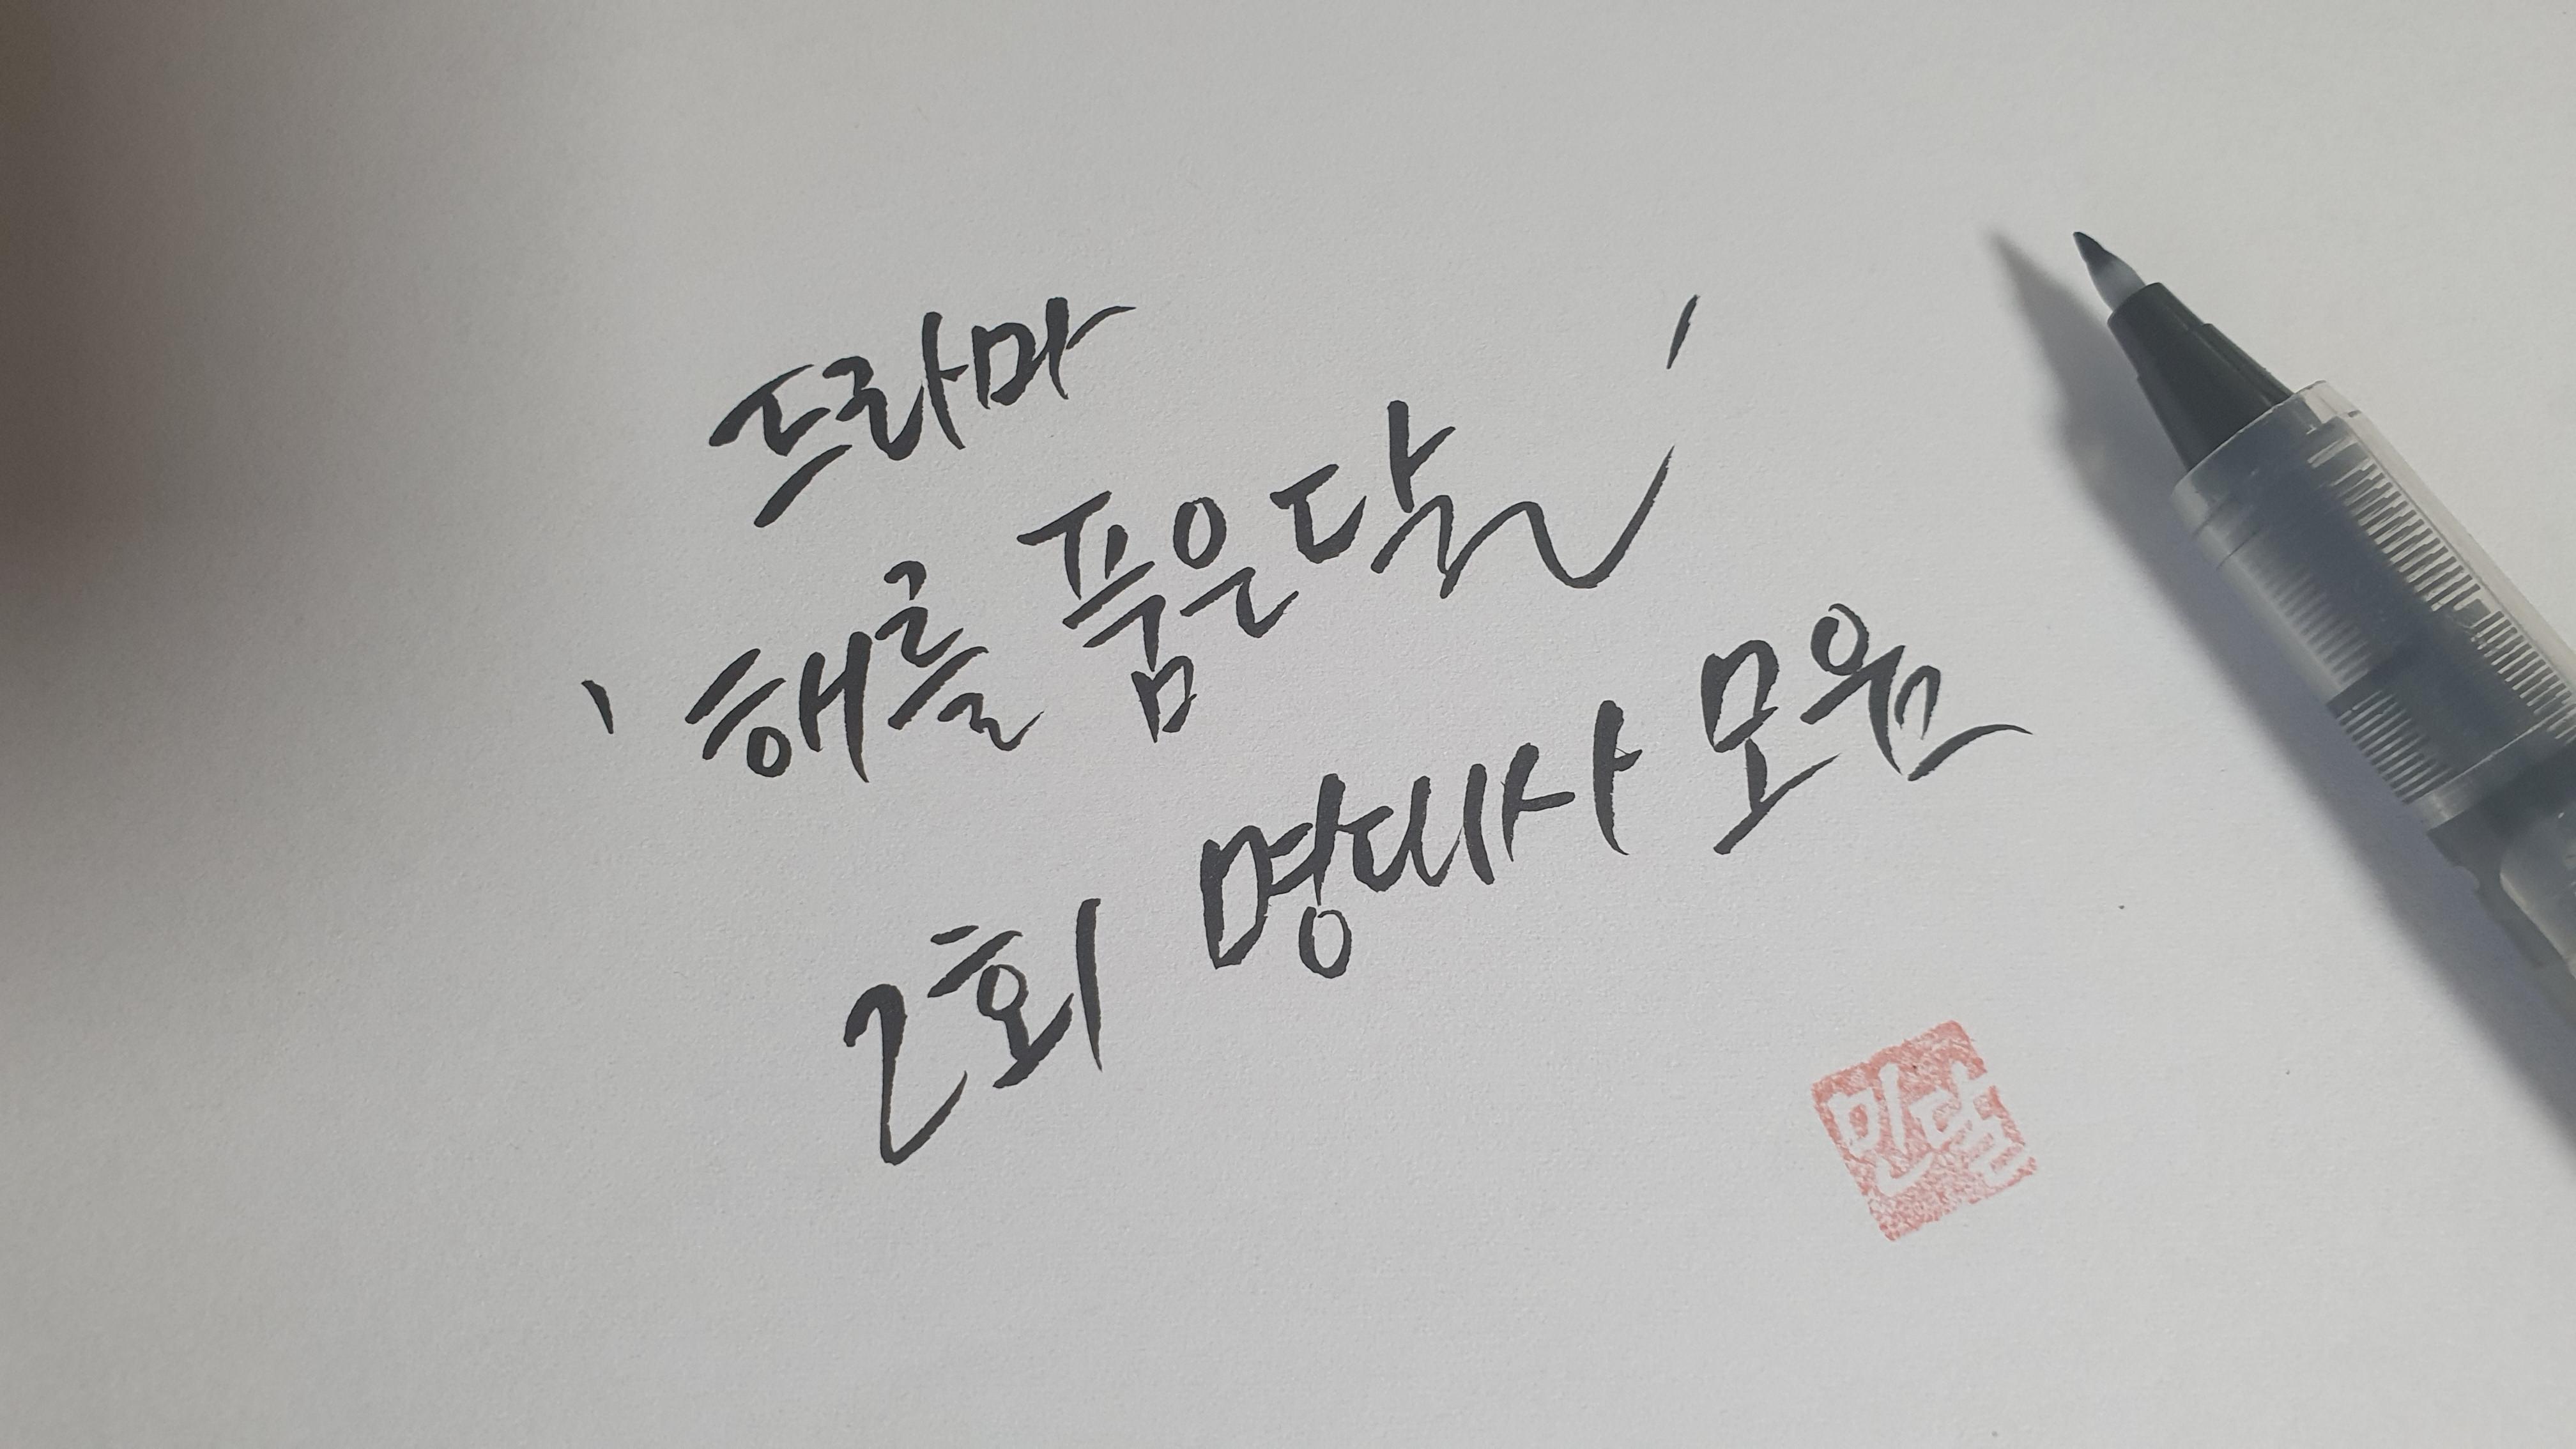 드라마
'해를 품은 달'
2회 명대사 모음
민달